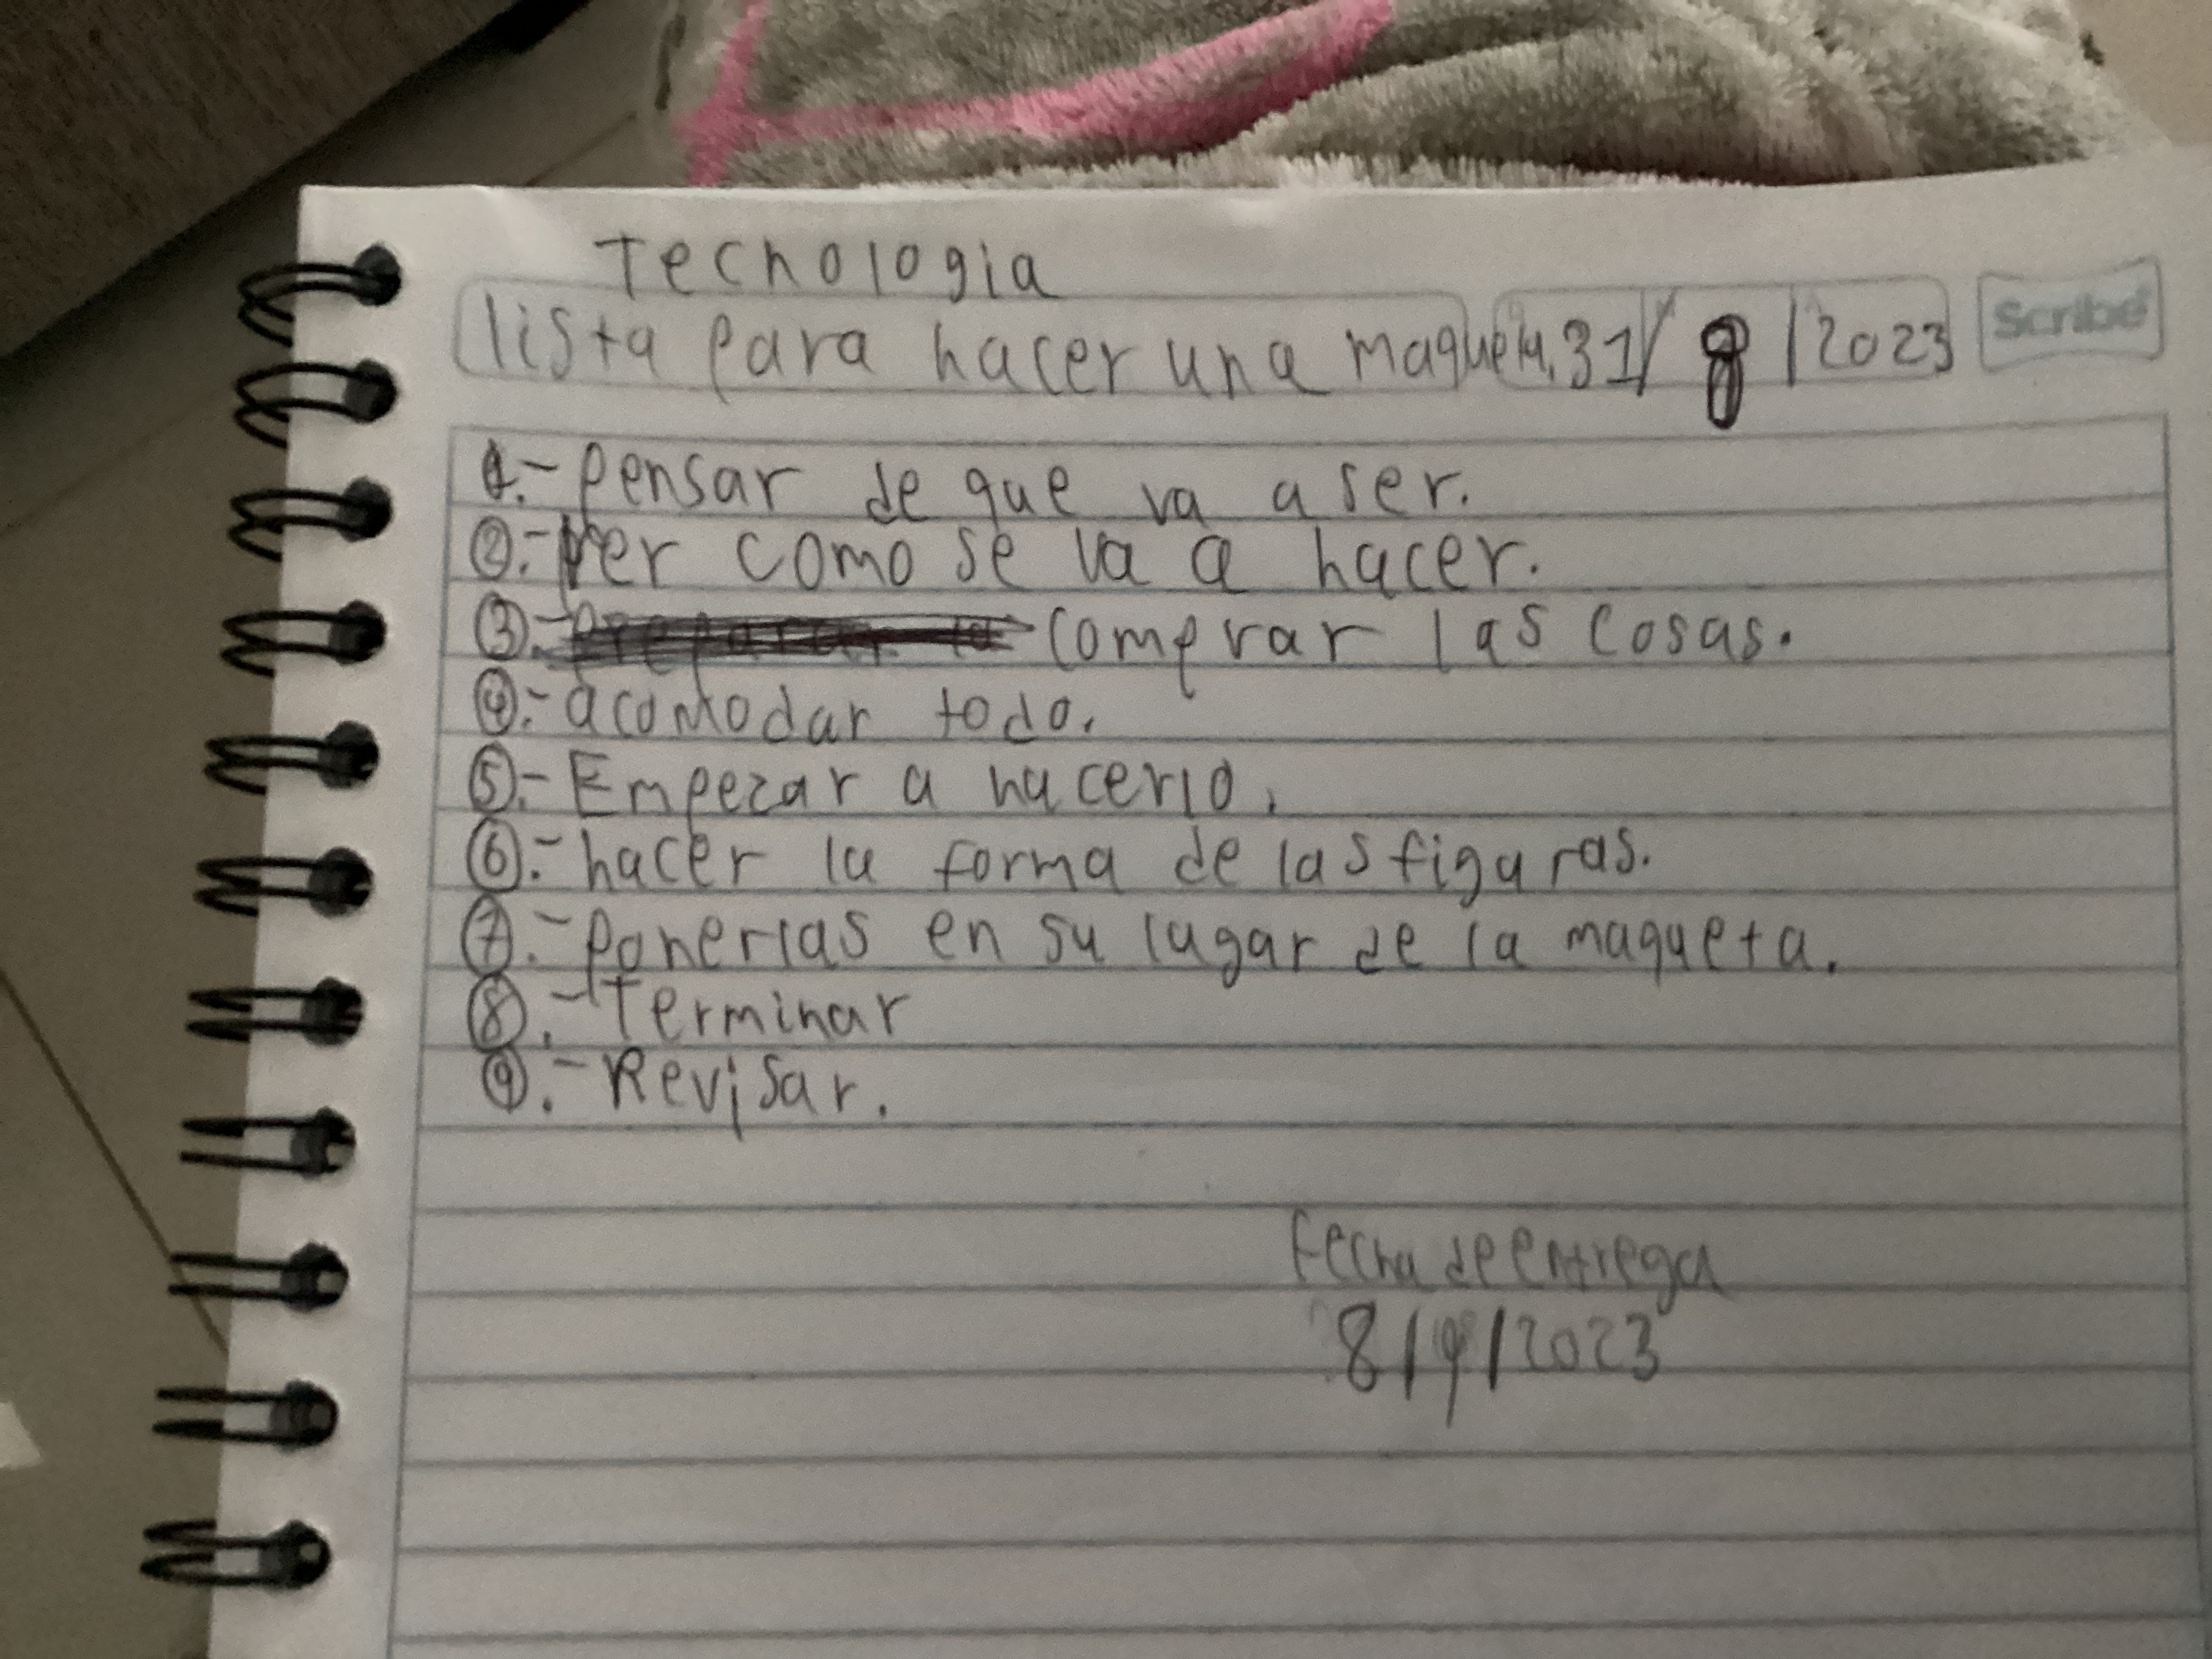 Tecnologia
lista para hacer una maqueta. 31/8/2023
Scribe
1.- Pensar de que va a ser.
2.- Ver como se va a hacer.
3.- comprar las cosas.
4.- acomodar todo.
5.- Empezar a hacerlo.
6.- hacer la forma de las figuras.
7.- Ponerlas en su lugar de la maqueta.
8.- Terminar
9.- Revisar.
Fecha de entrega
8/9/2023